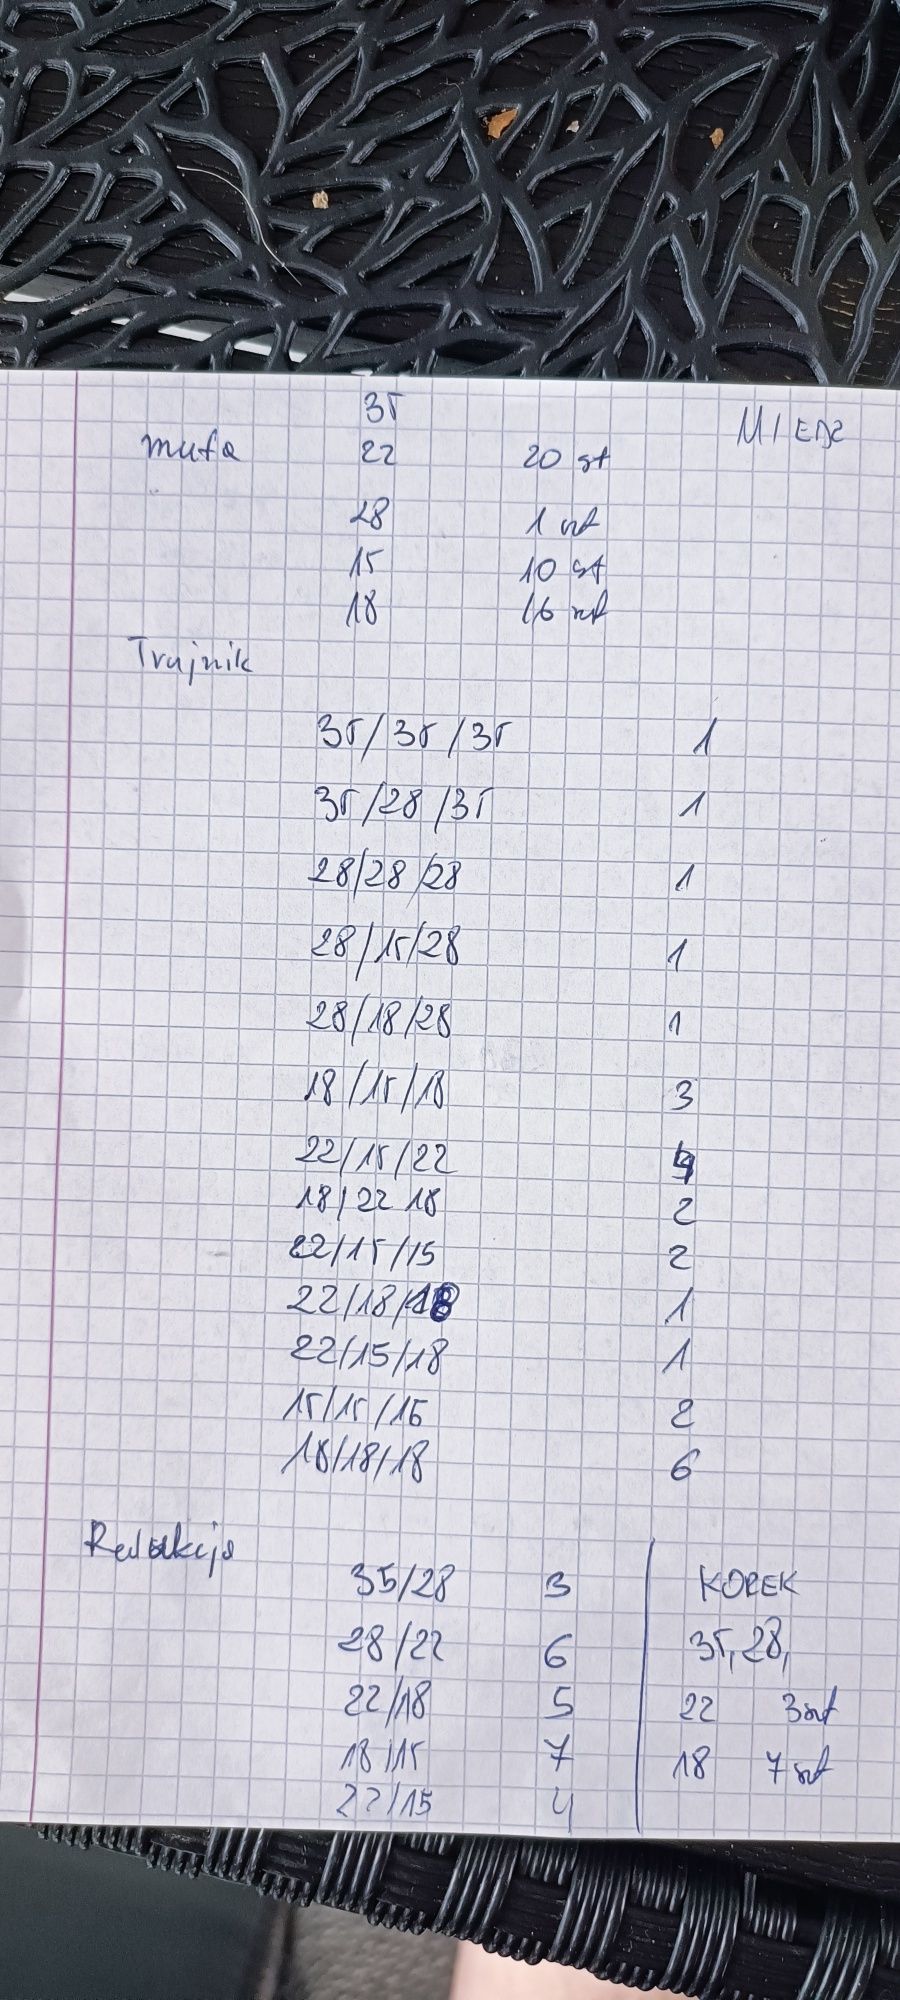 35
MIEDZ
mufa 22 20 szt
28 1 szt
15 10 szt
18 16 szt
Trujnik
35/35/35 1
35/28/35 1
28/28/28 1
28/15/28 1
28/18/28 1
18/15/18 3
22/15/22
18/22 18 2
22/15/15 2
22/18/18 1
22/15/18 1
15/15/15 2
18/18/18 6
Redukcja
35/28 3
28/22 6
22/18 5
18/15 7
22/15 4
KOREK
35, 28,
22 3 szt
18 7 szt